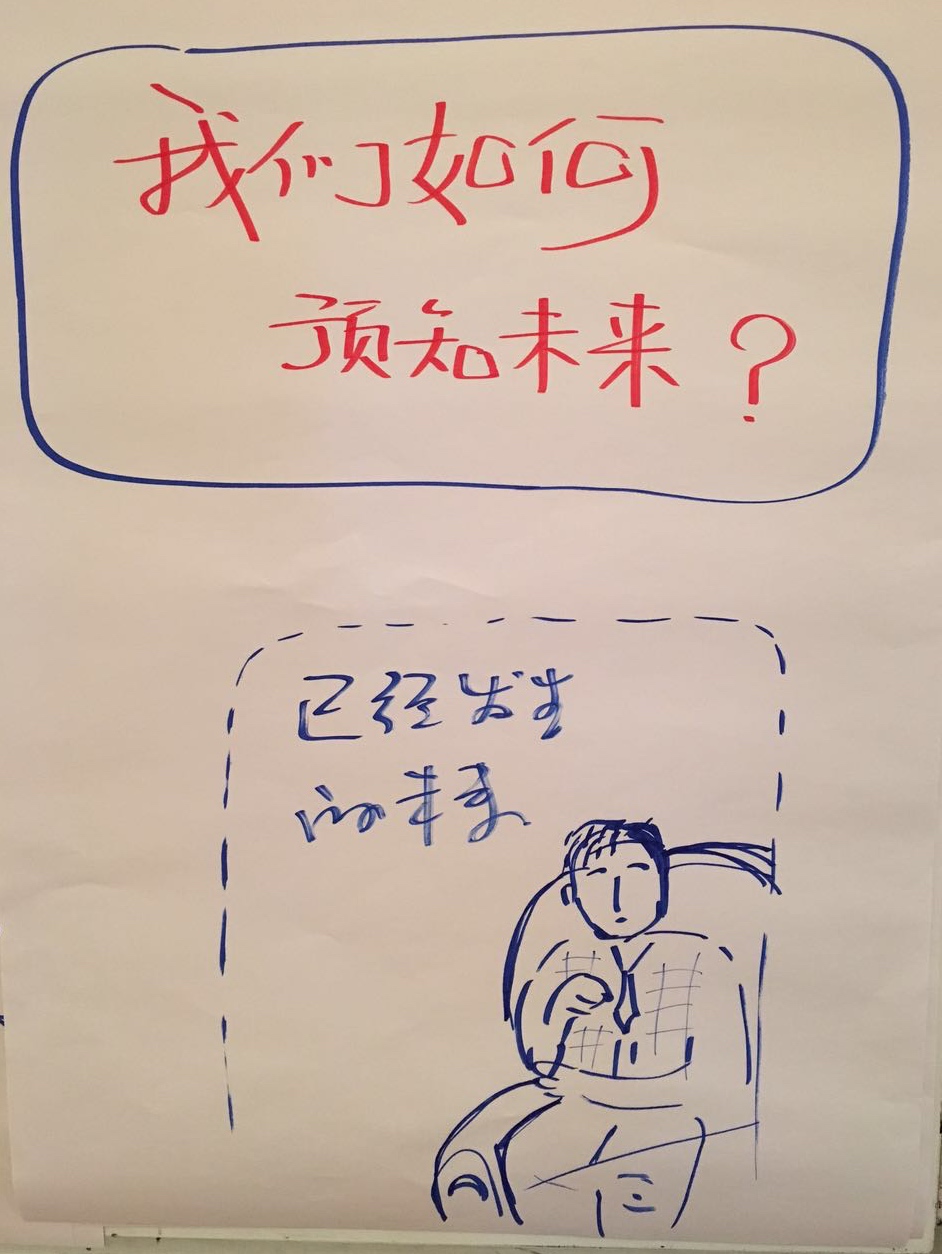 我们如何
预知未来？
已经发生
的未来